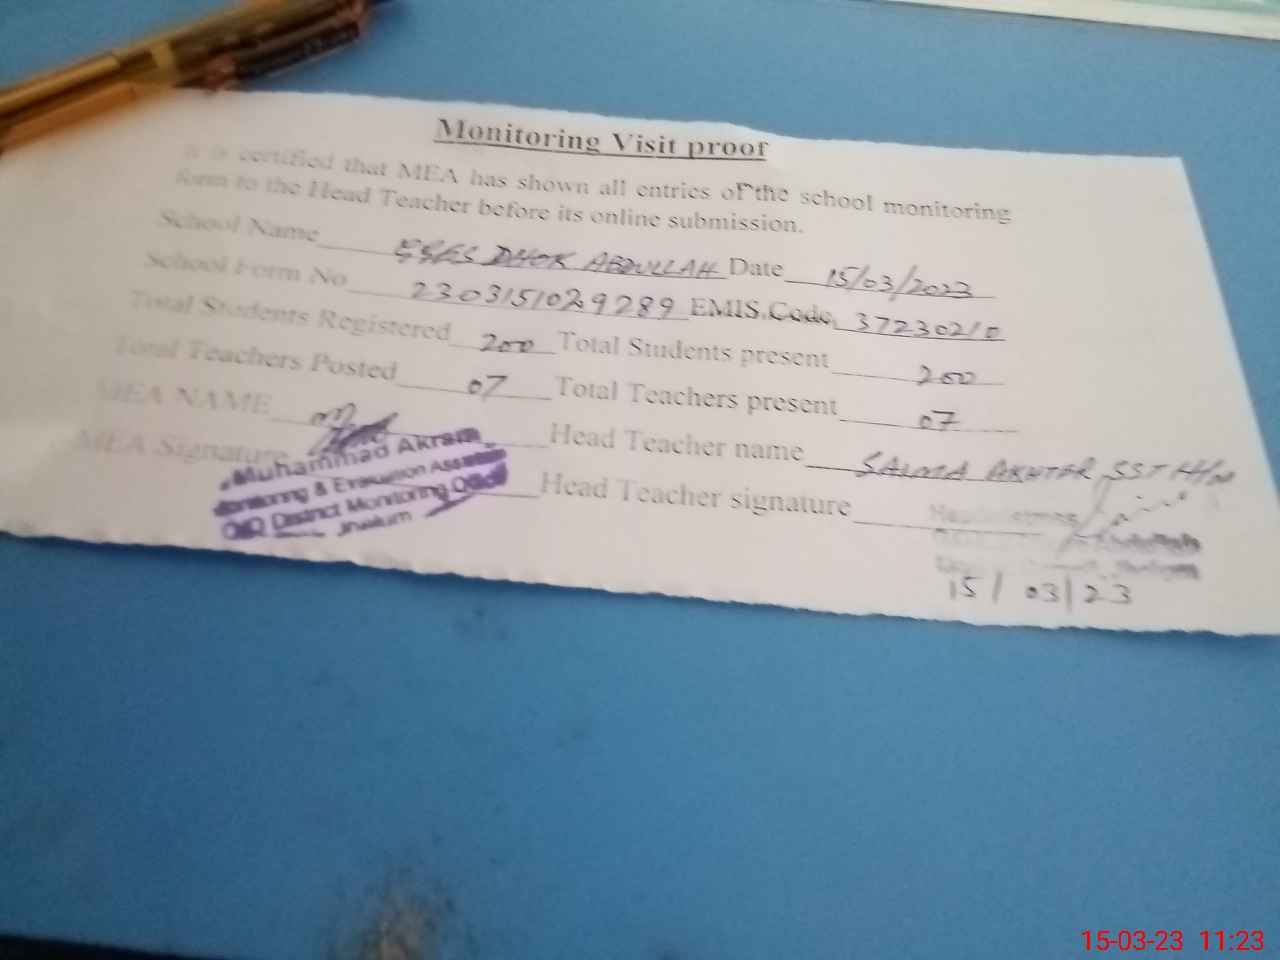 Monitoring Visit proof
It is certified that MEA has shown all entries of the school monitoring
form to the Head Teacher before its online submission.
School Name DHOK ABDULLAH Date 15/03/2023
School Form No 2303151029289 EMIS Code 37230210
Total Students Registered 200 Total Students present 200
Total Teachers Posted 07 Total Teachers present 07
MEA NAME Head Teacher name SALMA AKHTAR SST H/M
MEA Signature Head Teacher signature
Muhammad Akram
Monitoring & Evaluation Assistant
O/O District Monitoring Officer
Jhelum
15/03/23
15-03-23 11:23